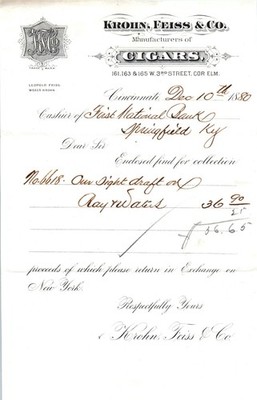 KROHN, FEISS & CO.
Manufacturers of
CIGARS,
161, 163 & 165 W. 3RD STREET, COR ELM.
TRADE MARK
LEOPOLD FEISS
MOSES KROHN
Cincinnati, Dec 10th 1880
Cashier of First National Bank
Springfield Ky
Dear Sir
Enclosed find for collection
No 6618. Our Sight draft on
Ray & Waters 36 90
25
36.65
proceeds of which please return in Exchange on
New York.
Respectfully Yours
Krohn, Feiss & Co